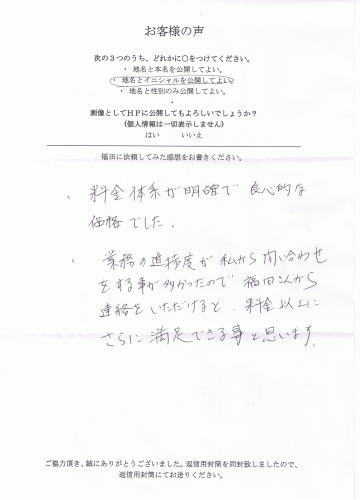 お客様の声
次の3つのうち、どれかに○をつけてください。
・ 地名と本名を公開してよい。
・ 地名とイニシャルを公開してよい。
・ 地名と性別のみ公開してよい。
・
画像としてHPに公開してもよろしいでしょうか?
(個人情報は一切表示しません)
はい　　いいえ
福田に依頼してみた感想をお書きください。
、料金体系が明確で良心的な
価格でした。
、業務の進捗度が私から問い合わせ
をする事が多かったので福田さんから
連絡をいただけると、料金以上に
さらに満足できる事と思います。
ご協力頂き、誠にありがとうございました。返信用封筒を同封致しましたので、
返信用封筒にてお送りください。